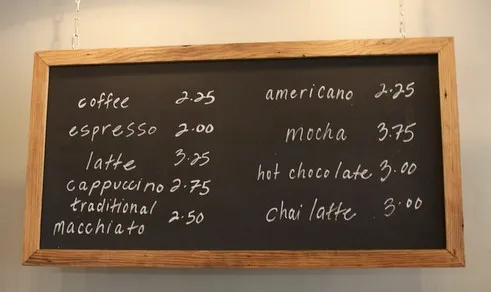 coffee 2.25
espresso 2.00
latte 3.25
cappuccino 2.75
traditional
macchiato 2.50
americano 2.25
mocha 3.75
hot chocolate 3.00
chai latte 3.00